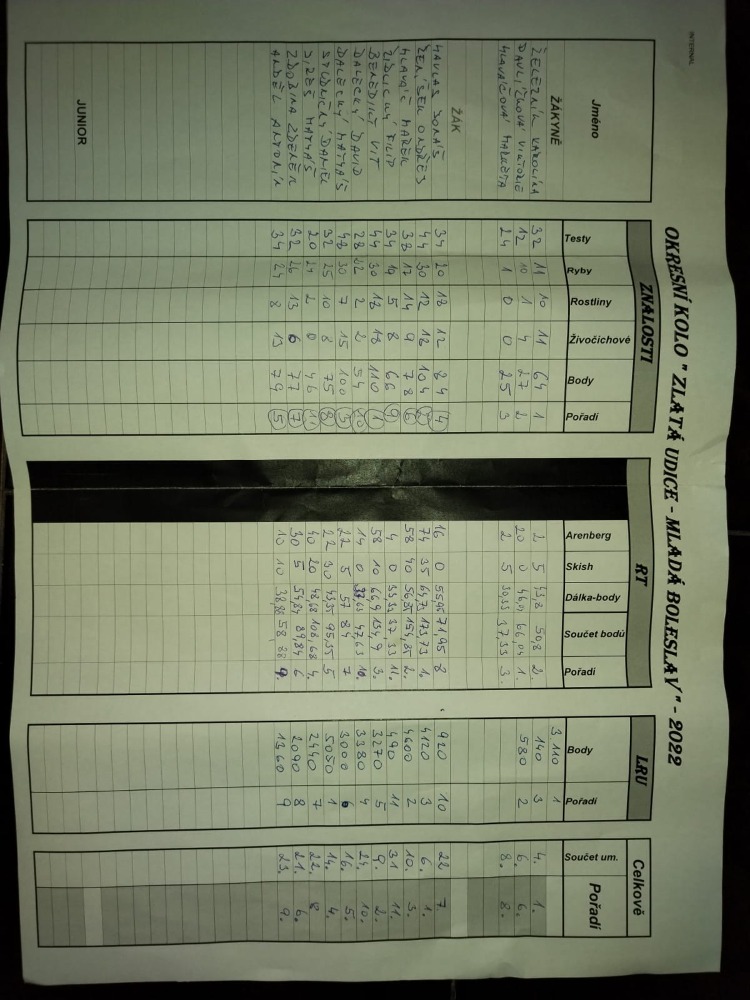 INTERNAL
OKRESNÍ KOLO " ZLATÁ UDICE - MLADÁ BOLESLAV" - 2022
ZNALOSTI RT LRU Celkově
Jméno Testy Ryby Rostliny Živočichové Body Pořadí Arenberg Skish Dálka-body Součet bodů Pořadí Body Pořadí Součet um. Pořadí
ŽÁKYNĚ 3 110 1
ŽELEZNÍK KAROLÍNA 32 11 10 11 64 1 2 5 43,8 50,8 2. 140 3 4. 1.
PAVLÍČKOVÁ VIKTORIE 12 10 1 4 27 2 20 0 46,04 66,04 1. 580 2 6. 6.
HLAVÁČOVÁ MARKÉTA 24 1 0 0 25 3 2 5 30,33 37,33 3. 8. 8.
ŽÁK
HAVLAS TOMÁŠ 34 20 18 12 84 4 16 0 55,95 71,95 8 920 10 22 7
ONDŘEJ 44 30 12 18 104 2 74 35 64,73 173,73 1. 4120 3 6. 1.
HLAVÁČ MAREK 38 17 14 9 78 6 58 40 56,85 154,85 2. 4400 2 10. 3.
ŽIDLICKÝ FILIP 34 19 5 8 66 9 4 0 33,33 37,33 11. 490 11 31 11.
BENEDIKT VÍT 44 30 18 18 110 1 58 10 66,9 134,9 3. 3270 5 9. 2.
DALECKÝ DAVID 28 22 2 2 54 10 14 0 33,63 47,63 10. 3380 4 24. 10.
DALECKÝ MATYÁŠ 48 30 7 15 100 3 22 5 57 84 7 3000 6 16. 5.
STUDNIČNÝ DANIEL 32 25 10 8 75 8 22 30 43,55 95,55 5 5050 1 14. 4.
JIREŠ MATYÁŠ 20 24 2 0 46 11 40 20 48,68 108,68 4. 2440 7 22. 8
ZDOBINA ZDENĚK 32 26 13 6 77 7 30 5 54,84 89,84 6 2090 8 21. 6.
ANDĚL ANTONÍN 34 24 8 13 79 5 10 10 38,88 58,88 9. 1360 9 23. 9.
JUNIOR